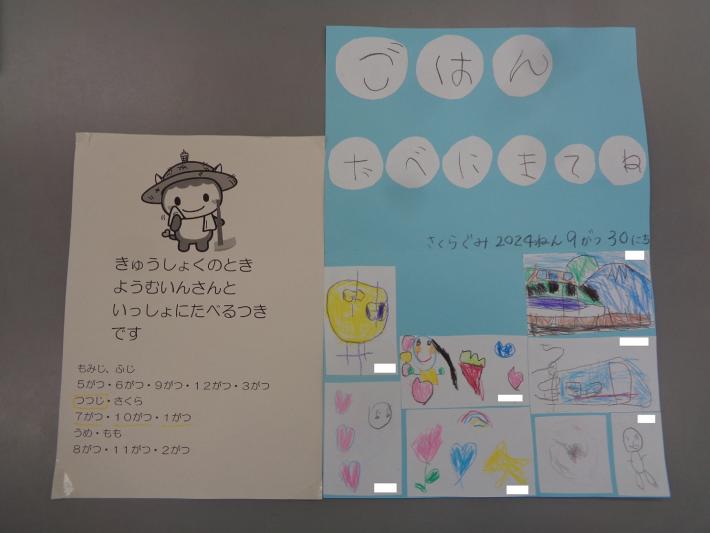 きゅうしょくのとき
ようむいんさんと
いっしょにたべるつき
です
もみじ、ふじ
5がつ・6がつ・9がつ・12がつ・3がつ
つつじ・さくら
7がつ・10がつ・1がつ
うめ・もも
8がつ・11がつ・2がつ
ごはん
たべにきてね
さくらぐみ 2024ねん 9がつ 30にち